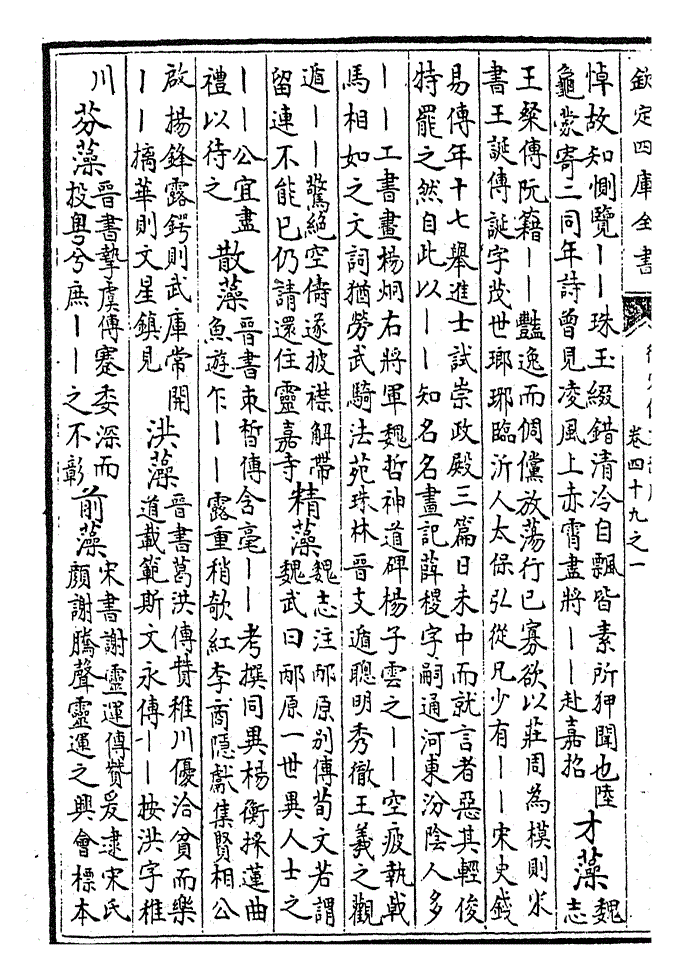 欽定四庫全書
卷四十九之一
悼故知惻覽——珠玉綴錯清冷自飄皆素所狎聞也陸
龜蒙寄二同年詩曾見凌風上赤霄盡將——赴嘉招
才藻
魏
志
王粲傳阮籍——豔逸而倜儻放蕩行已寡欲以莊周為模則宋
書王誕傳誕字茂世瑯琊臨沂人太保弘從兄少有——宋史錢
易傳年十七舉進士試崇政殿三篇日未中而就言者惡其輕俊
特罷之然自此以——知名名畫記薛稷字嗣通河東汾陰人多
——工書畫楊炯右將軍魏哲神道碑楊子雲之——空疲執戟
馬相如之文詞猶勞武騎法苑珠林晉支遁聰明秀徹王羲之觀
遁——驚絕空儔遂披襟解帶
留連不能已仍請還住靈嘉寺
精藻
魏志注邴原別傳荀文若謂
魏武曰邴原一世異人士之
——公宜盡
禮以待之
散藻
晉書束晳傳含毫——考撰同異楊衡採蓮曲
魚遊乍——露重稍欹紅李商隱獻集賢相公
啟揚鋒露鍔則武庫常開
——摛華則文星鎮見
洪藻
晉書葛洪傳贊稚川優洽貧而樂
道載範斯文永傳——按洪字稚
川
芬藻
晉書摯虞傳蹇委深而
投粵兮庶——之不彰
前藻
宋書謝靈運傳贊爰逮宋氏
顏謝騰聲靈運之興會標本